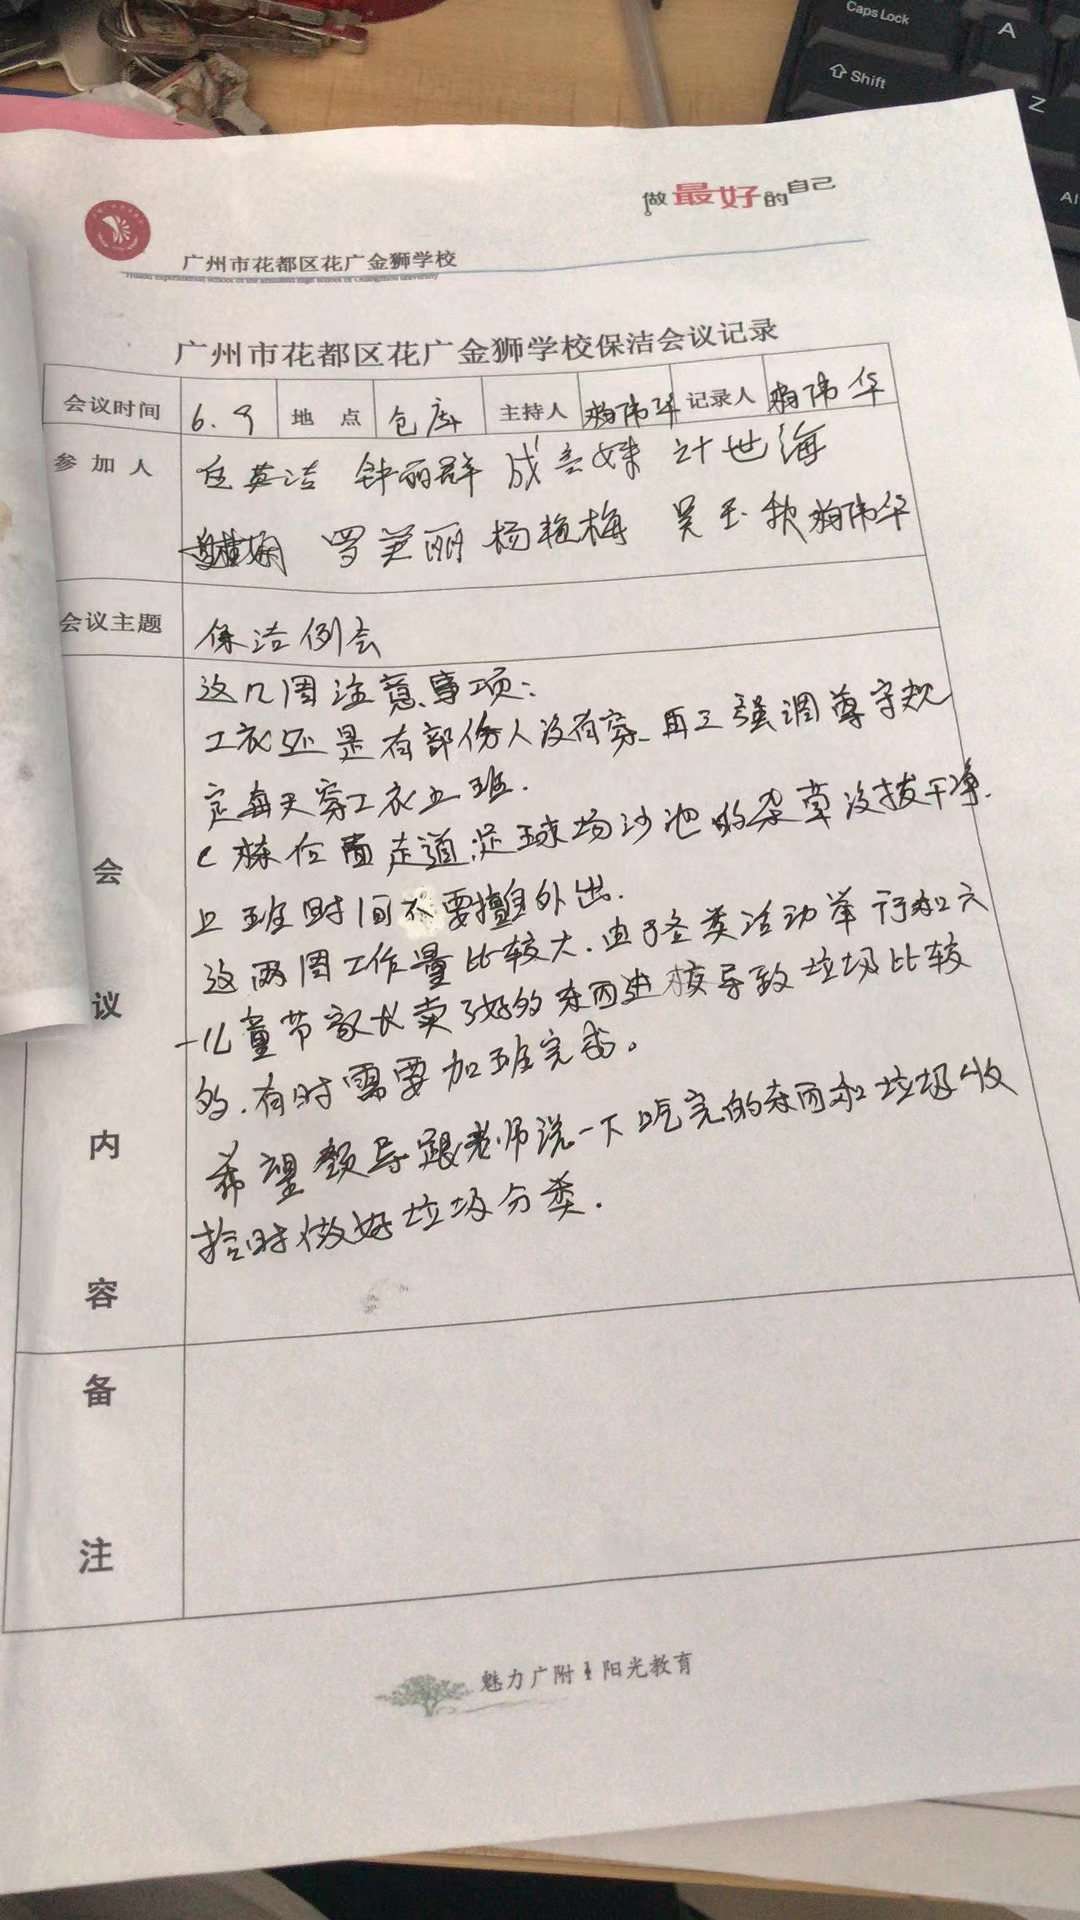 Caps Lock
A
Shift
Z
做最好的自己
广州市花都区花广金狮学校
广州市花都区花广金狮学校保洁会议记录
会议时间 6.9 地点 仓库 主持人 梅伟华 记录人 梅伟华
参加人 英洁 钟丽群 成 妹 计世海
罗美丽 杨艳梅 吴玉秋 梅伟华
会议主题 保洁例会
会议内容
这几周注意事项:
工衣还是有部份人没有穿、再三强调尊守规
定每天穿工衣上班.
C栋位置走道,足球场沙池的杂草没拔干净.
上班时间不要擅自外出.
这两周工作量比较大.由于各类活动举行和六
一儿童节家长卖了好的东西进校导致垃圾比较
多.有时需要加班完成。
希望领导跟老师说一下吃完的东西和垃圾收
拾时做好垃圾分类.
备注
魅力广附 阳光教育